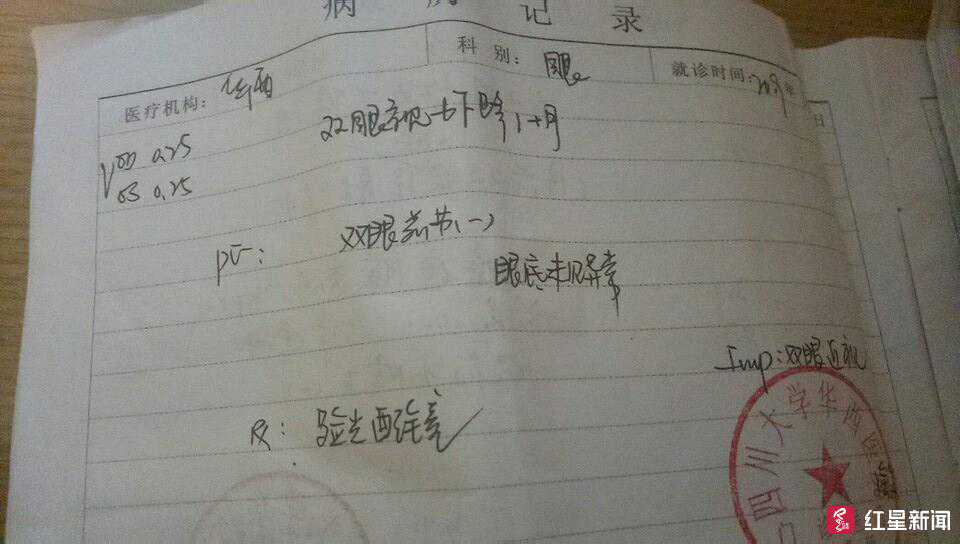 病 历 记 录
医疗机构: 华西
科 别: 眼
就诊时间: 年
日
V OD 0.25
OS 0.25
双眼视力下降1+月
PE: 双眼前节(-)
眼底未见异常
Imp: 双眼近视
R: 验光配镜
四川大学华西医院
红星新闻